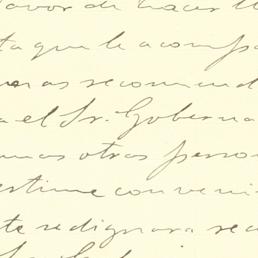 favor de hacer ll
ta que le acompa
recomend
a el Sr. Goberna
otras perso
estime conveni
te se dignara